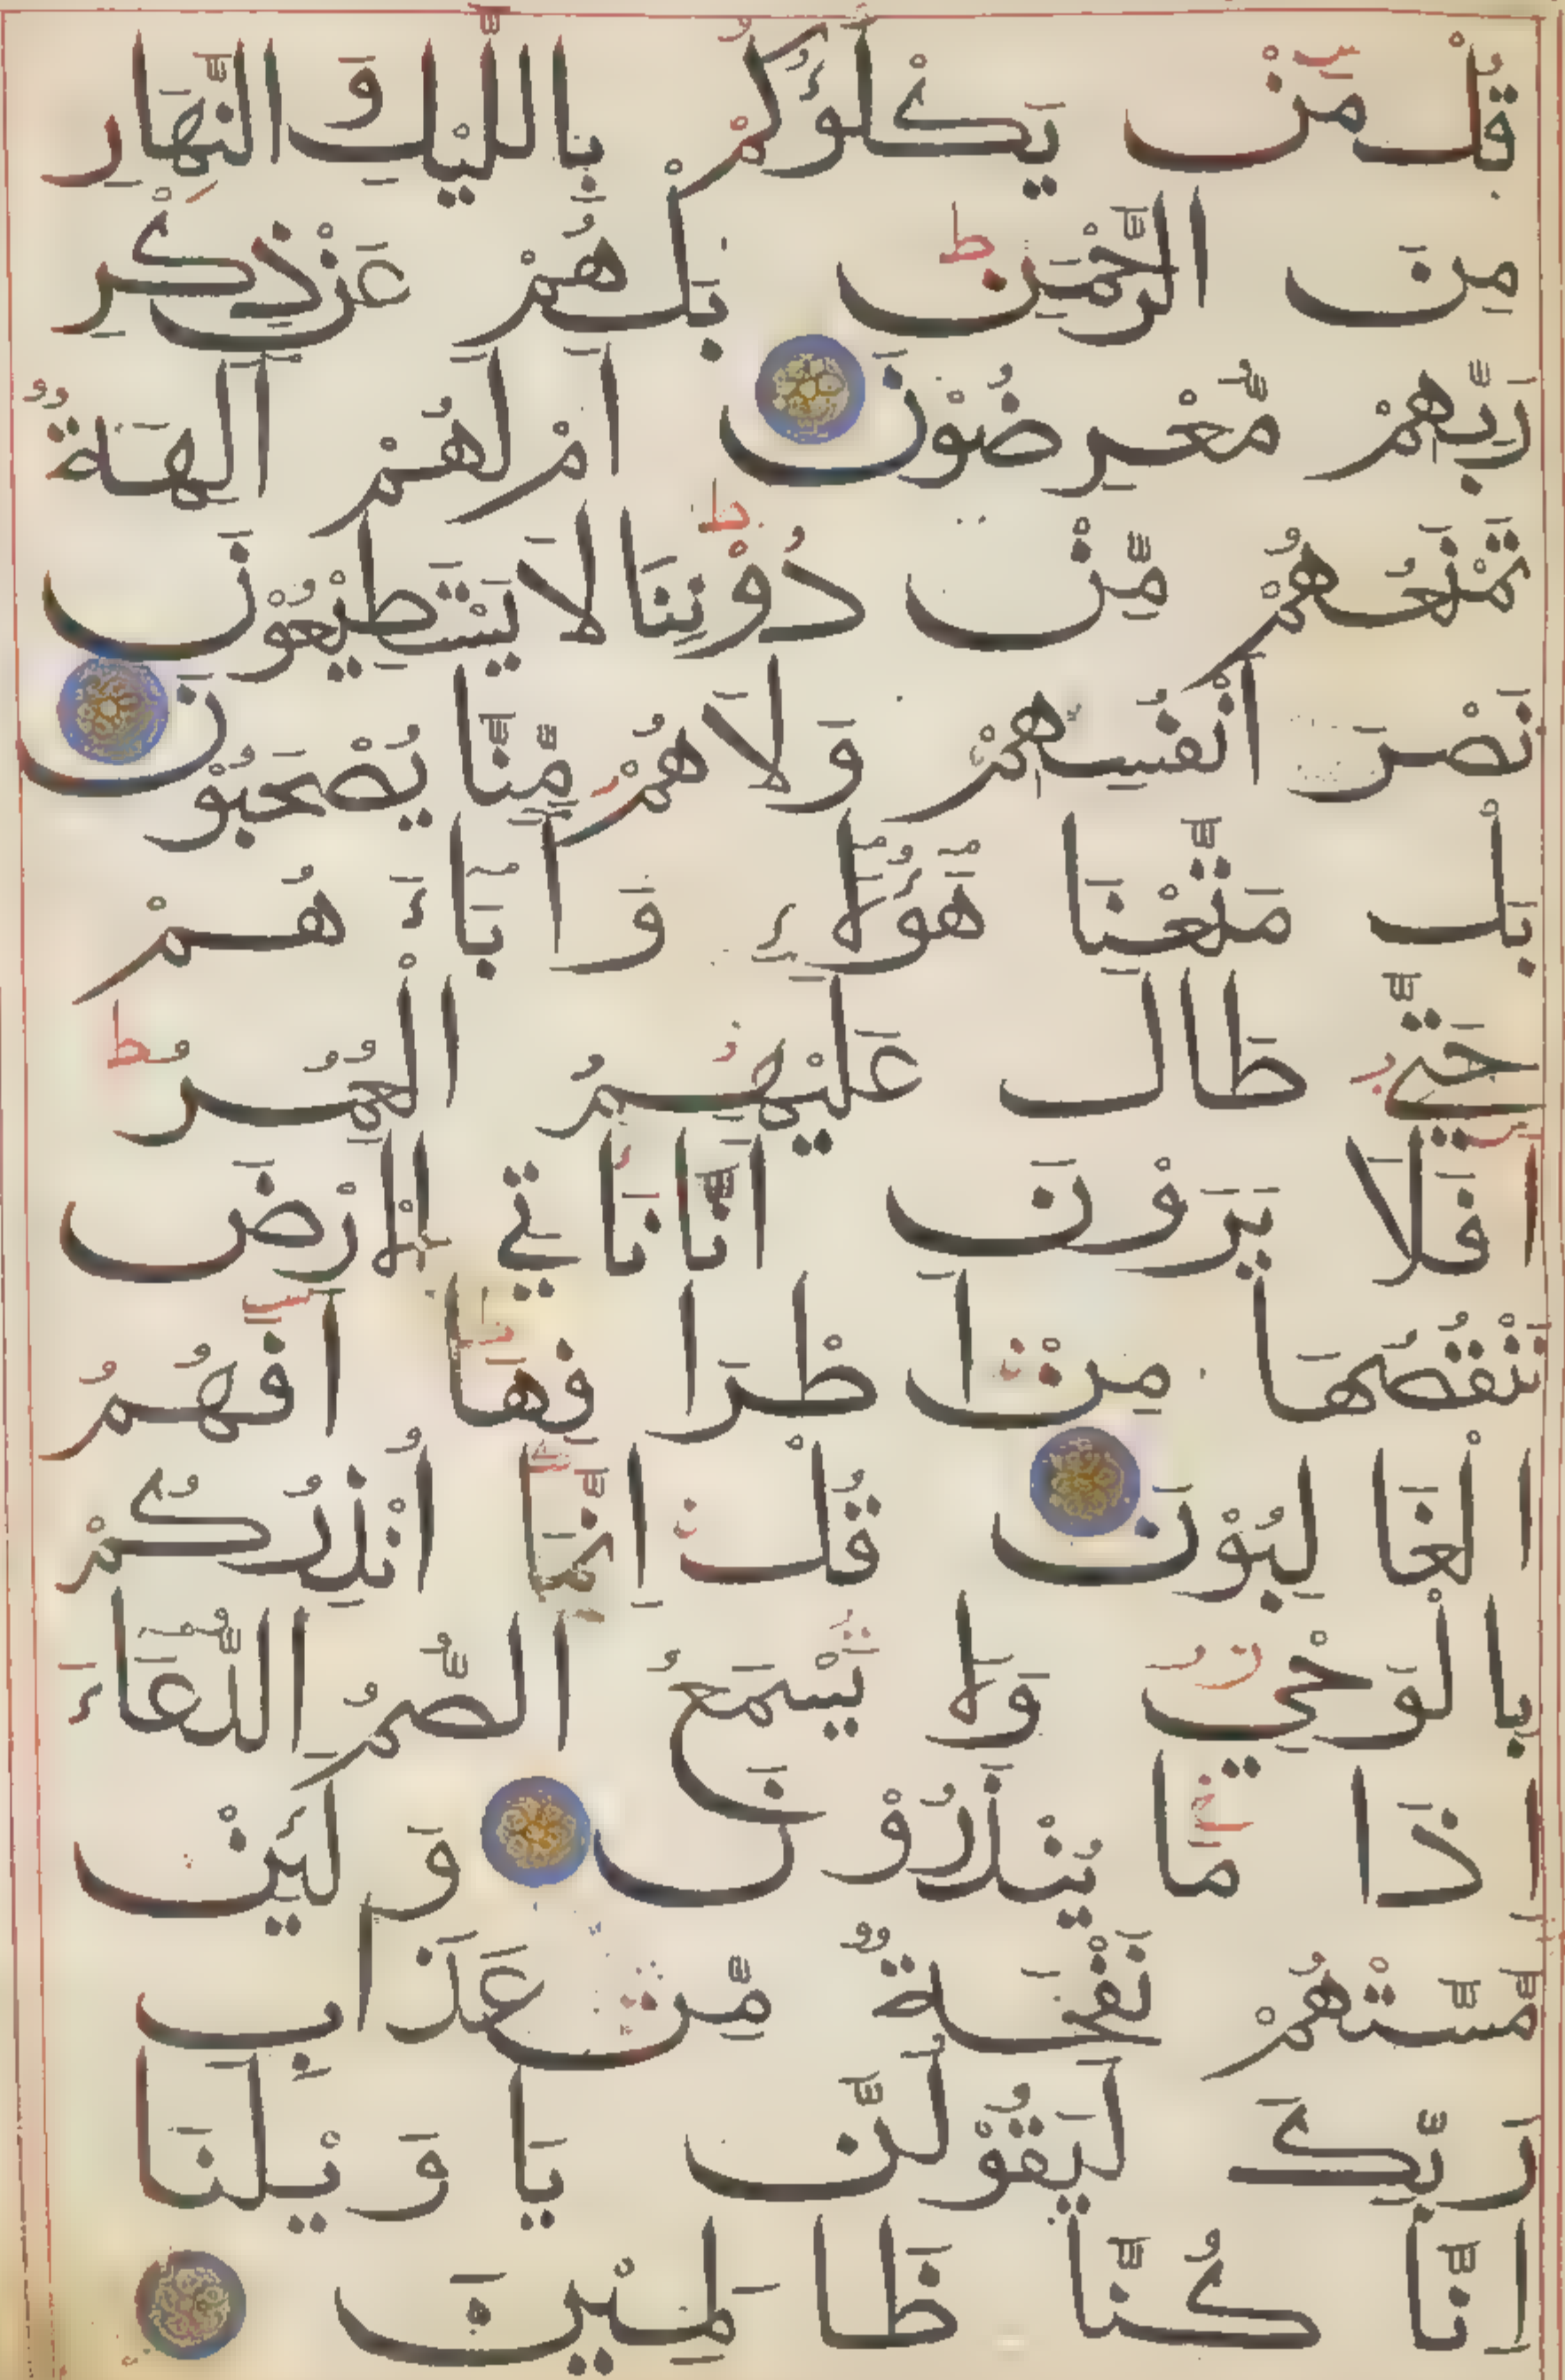 قُلْ مَنْ يَكْلَؤُكُمْ بِاللَّيْلِ وَالنَّهَارِ
مِنَ الرَّحْمَنِ بَلْ هُمْ عَنْ ذِكْرِ
رَبِّهِمْ مُّعْرِضُوْنَ اَمْ لَهُمْ اَلِهَةٌ
تَمْنَعُهُمْ مِّنْ دُوْنِنَا لَا يَسْتَطِيْعُوْنَ
نَصْرَ اَنْفُسِهِمْ وَلَاهُمْ مِّنَّا يُصْحَبُوْنَ
بَلْ مَتَّعْنَا هٰؤُلَاءِ وَاٰبَاءَهُمْ
حَتَّى طَالَ عَلَيْهِمُ الْعُمُرُ
اَفَلَا يَرَوْنَ اَنَّا نَاتِي الْاَرْضَ
نَنْقُصُهَا مِنْ اَطْرَافِهَا اَفَهُمُ
الْغَالِبُوْنَ قُلْ اِنَّمَا اُنْذِرُكُمْ
بِالْوَحْيِ وَلَا يَسْمَعُ الصُّمُّ الدُّعَاءَ
اِذَا مَا يُنْذَرُوْنَ وَلَئِنْ
مَّسَّتْهُمْ نَفْحَةٌ مِّنْ عَذَابِ
رَبِّكَ لَيَقُوْلُنَّ يَا وَيْلَنَا
اِنَّا كُنَّا ظَالِمِيْنَ